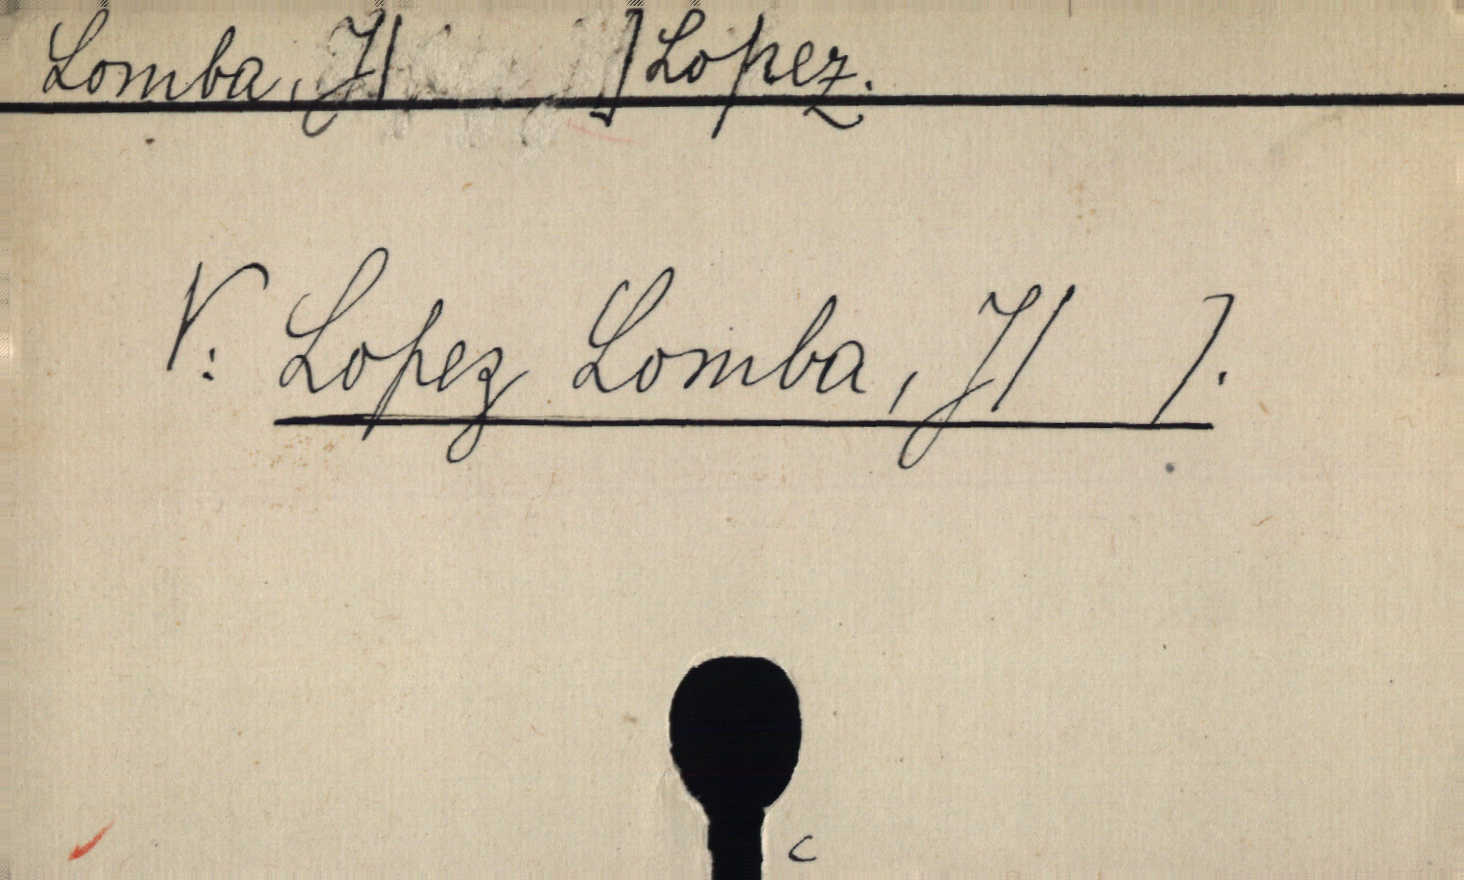 Lomba, J[ ] Lopez.
V: Lopez Lomba, J[ ].
c